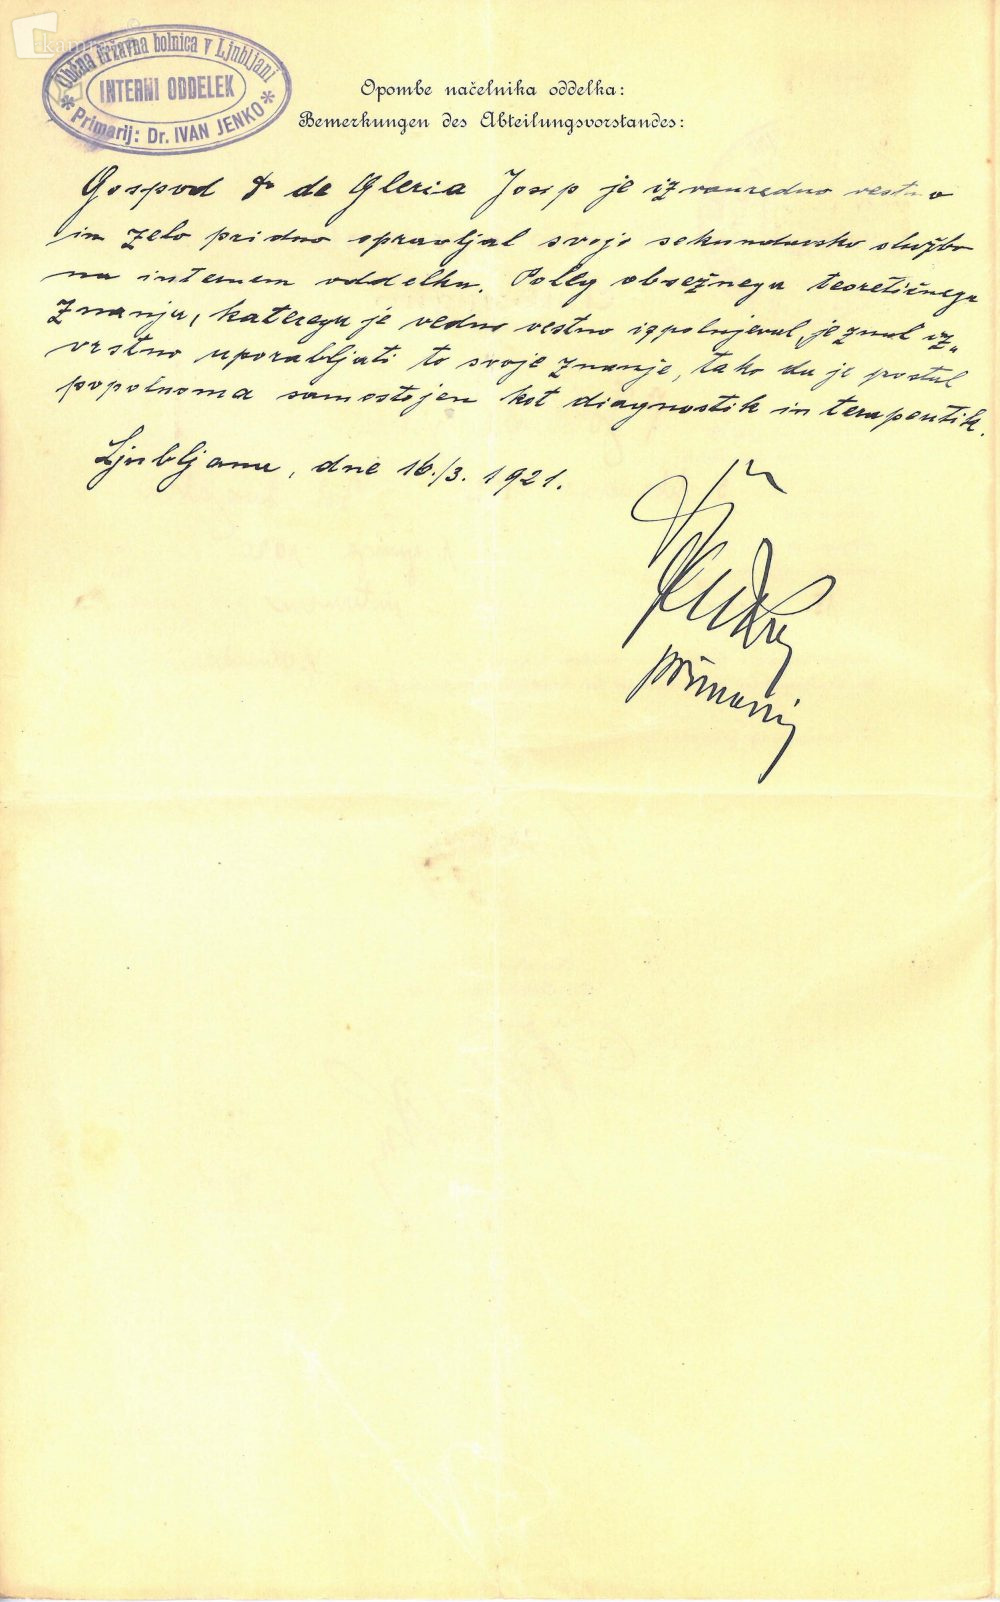 Občna državna bolnica v Ljubljani
INTERNI ODDELEK
* Primarij: Dr. IVAN JENKO *
Opombe načelnika oddelka:
Bemerkungen des Abteilungsvorstandes:
Gospod Dr de Gleria Josip je izvanredno vestno
in zelo pridno opravljal svojo sekundarsko službo
na internem oddelku. Poleg obsežnega teoretičnega
znanja, katerega je vedno vestno izpolnjeval, je znal iz„
vrstno uporabljati to svoje znanje, tako da je postal
popolnoma samostojen kot diagnostik in terapeutik.
Ljubljana, dne 16./3. 1921.
primarij